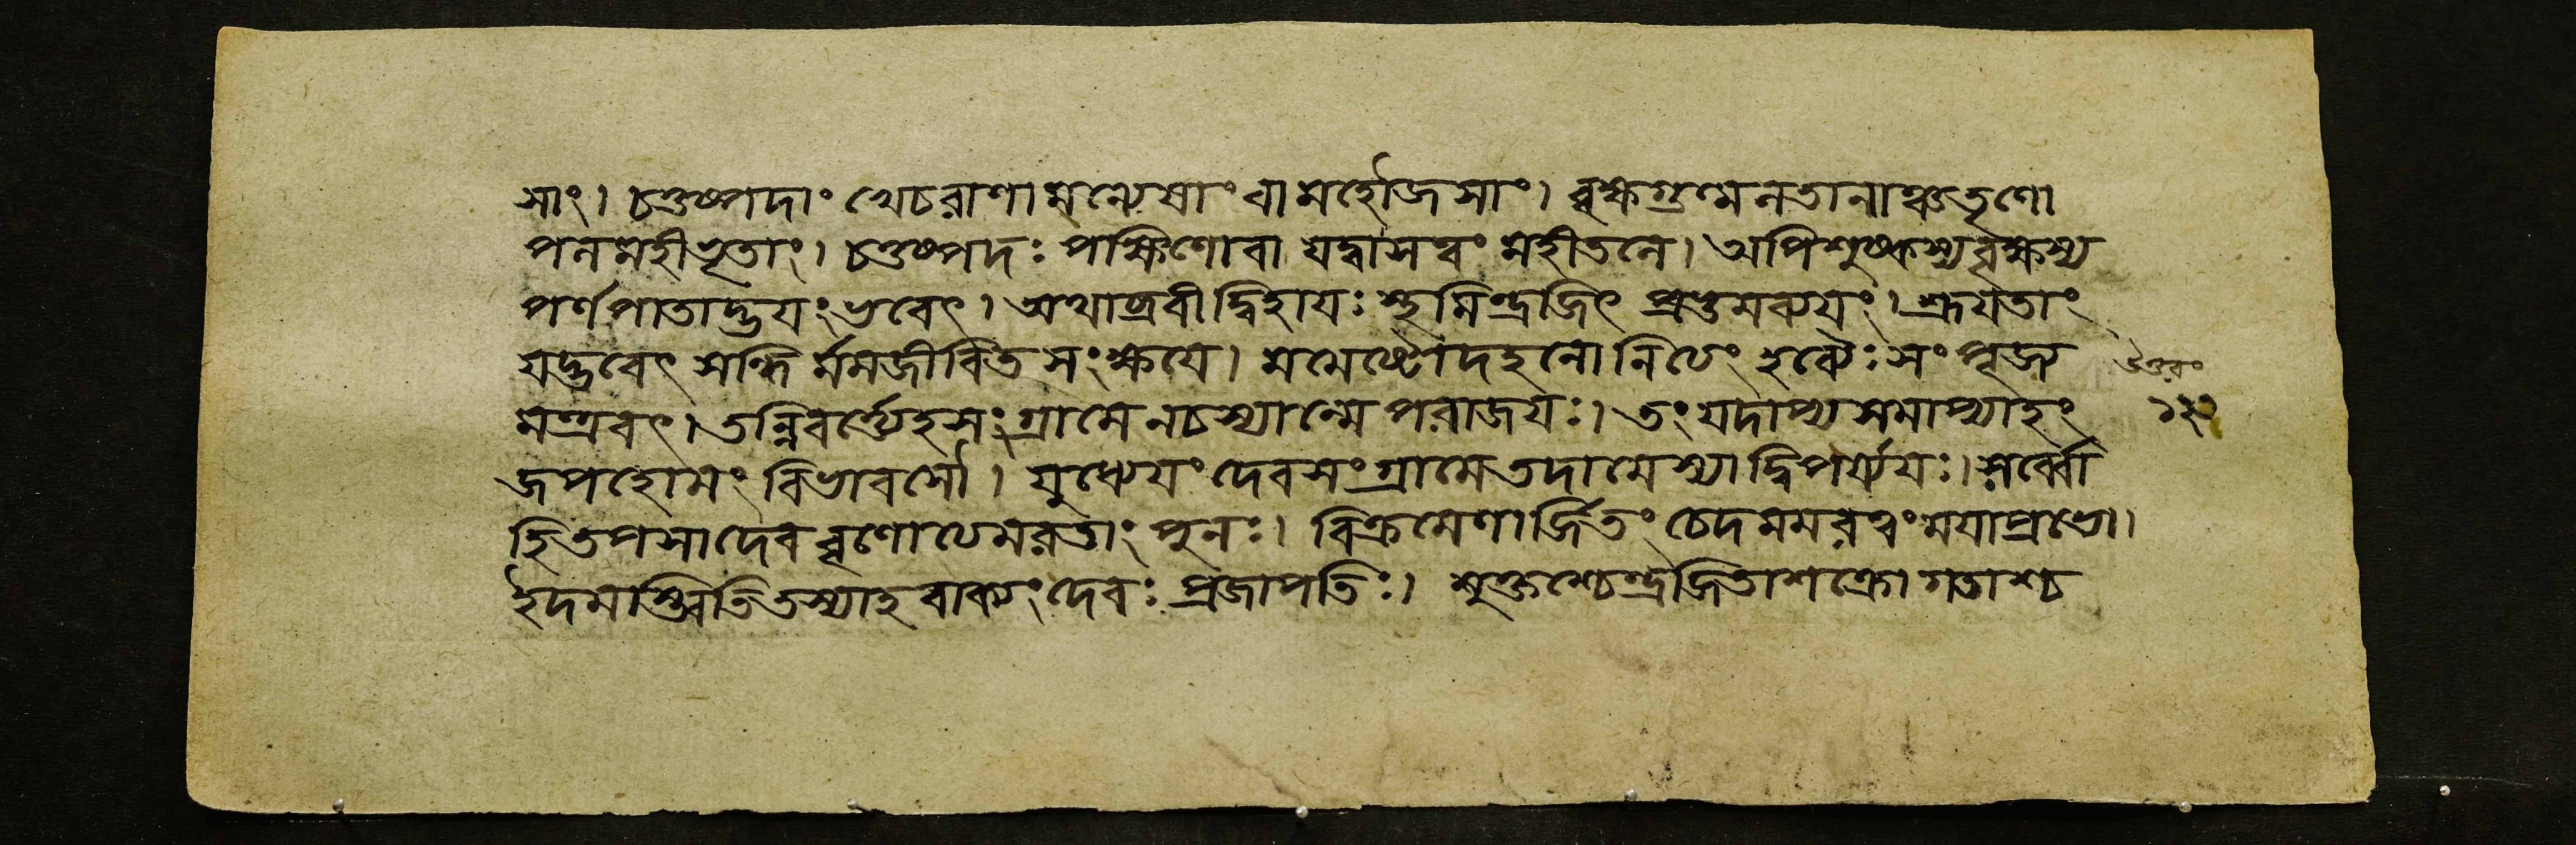 সাং। চতুষ্পদাং খেচরাণামন্যেষাং বা মহৌজসাং। বৃক্ষগুল্মলতানাঞ্চ তৃণো
পলমহীভৃতাং। চতুষ্পদঃ পক্ষিণো বা যে দ্বাসত্বং মহীতলে। অপি শুষ্কস্য বৃক্ষস্য
পর্ণপাতাদ্ভয়ং ভবেৎ। অথাব্রবীদ্বিহায়ঃ স্থমিন্দ্রজিৎ প্রভুমব্যয়ং। শ্রূয়তাং
যদ্ভবেৎ সন্ধি র্মমজীবিত সংক্ষয়ে। মমেষ্টো দহনো নিত্যং হব্যৈঃ সংপূজ্য
মন্ত্রবৎ। তন্নিবর্ত্তেহ সংগ্রামে ন চ স্যান্মে পরাজয়ঃ। তং যদাপ্য সমাপ্যাহং
জপহোমং বিভাবসৌ। যুধ্যেয়ং দেবসংগ্রামে তদা মে স্যাদ্বিপর্য্যয়ঃ। সর্ব্বো
হি তপসা দেব বৃণোত্যমরতাং পুনঃ। বিক্রমেণার্জিতং চেদমমরত্বং ময়া প্রভো।
ইদমস্ত্বিতি তস্যাহ বাক্যং দেবঃ প্রজাপতিঃ। মুক্তশ্চেন্দ্রজিতা শক্রো গতাশ্চ
উত্তরং
১২১